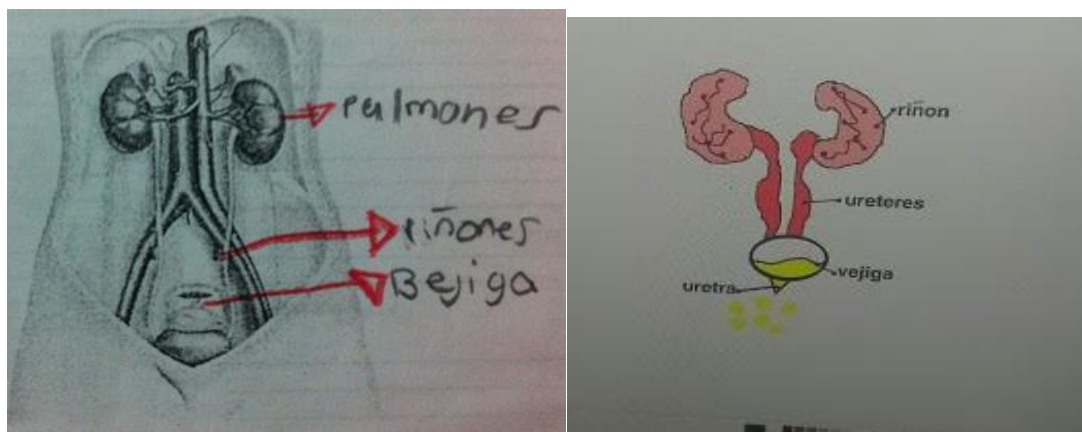 pulmones
riñones
Bejiga
riñon
ureteres
vejiga
uretra